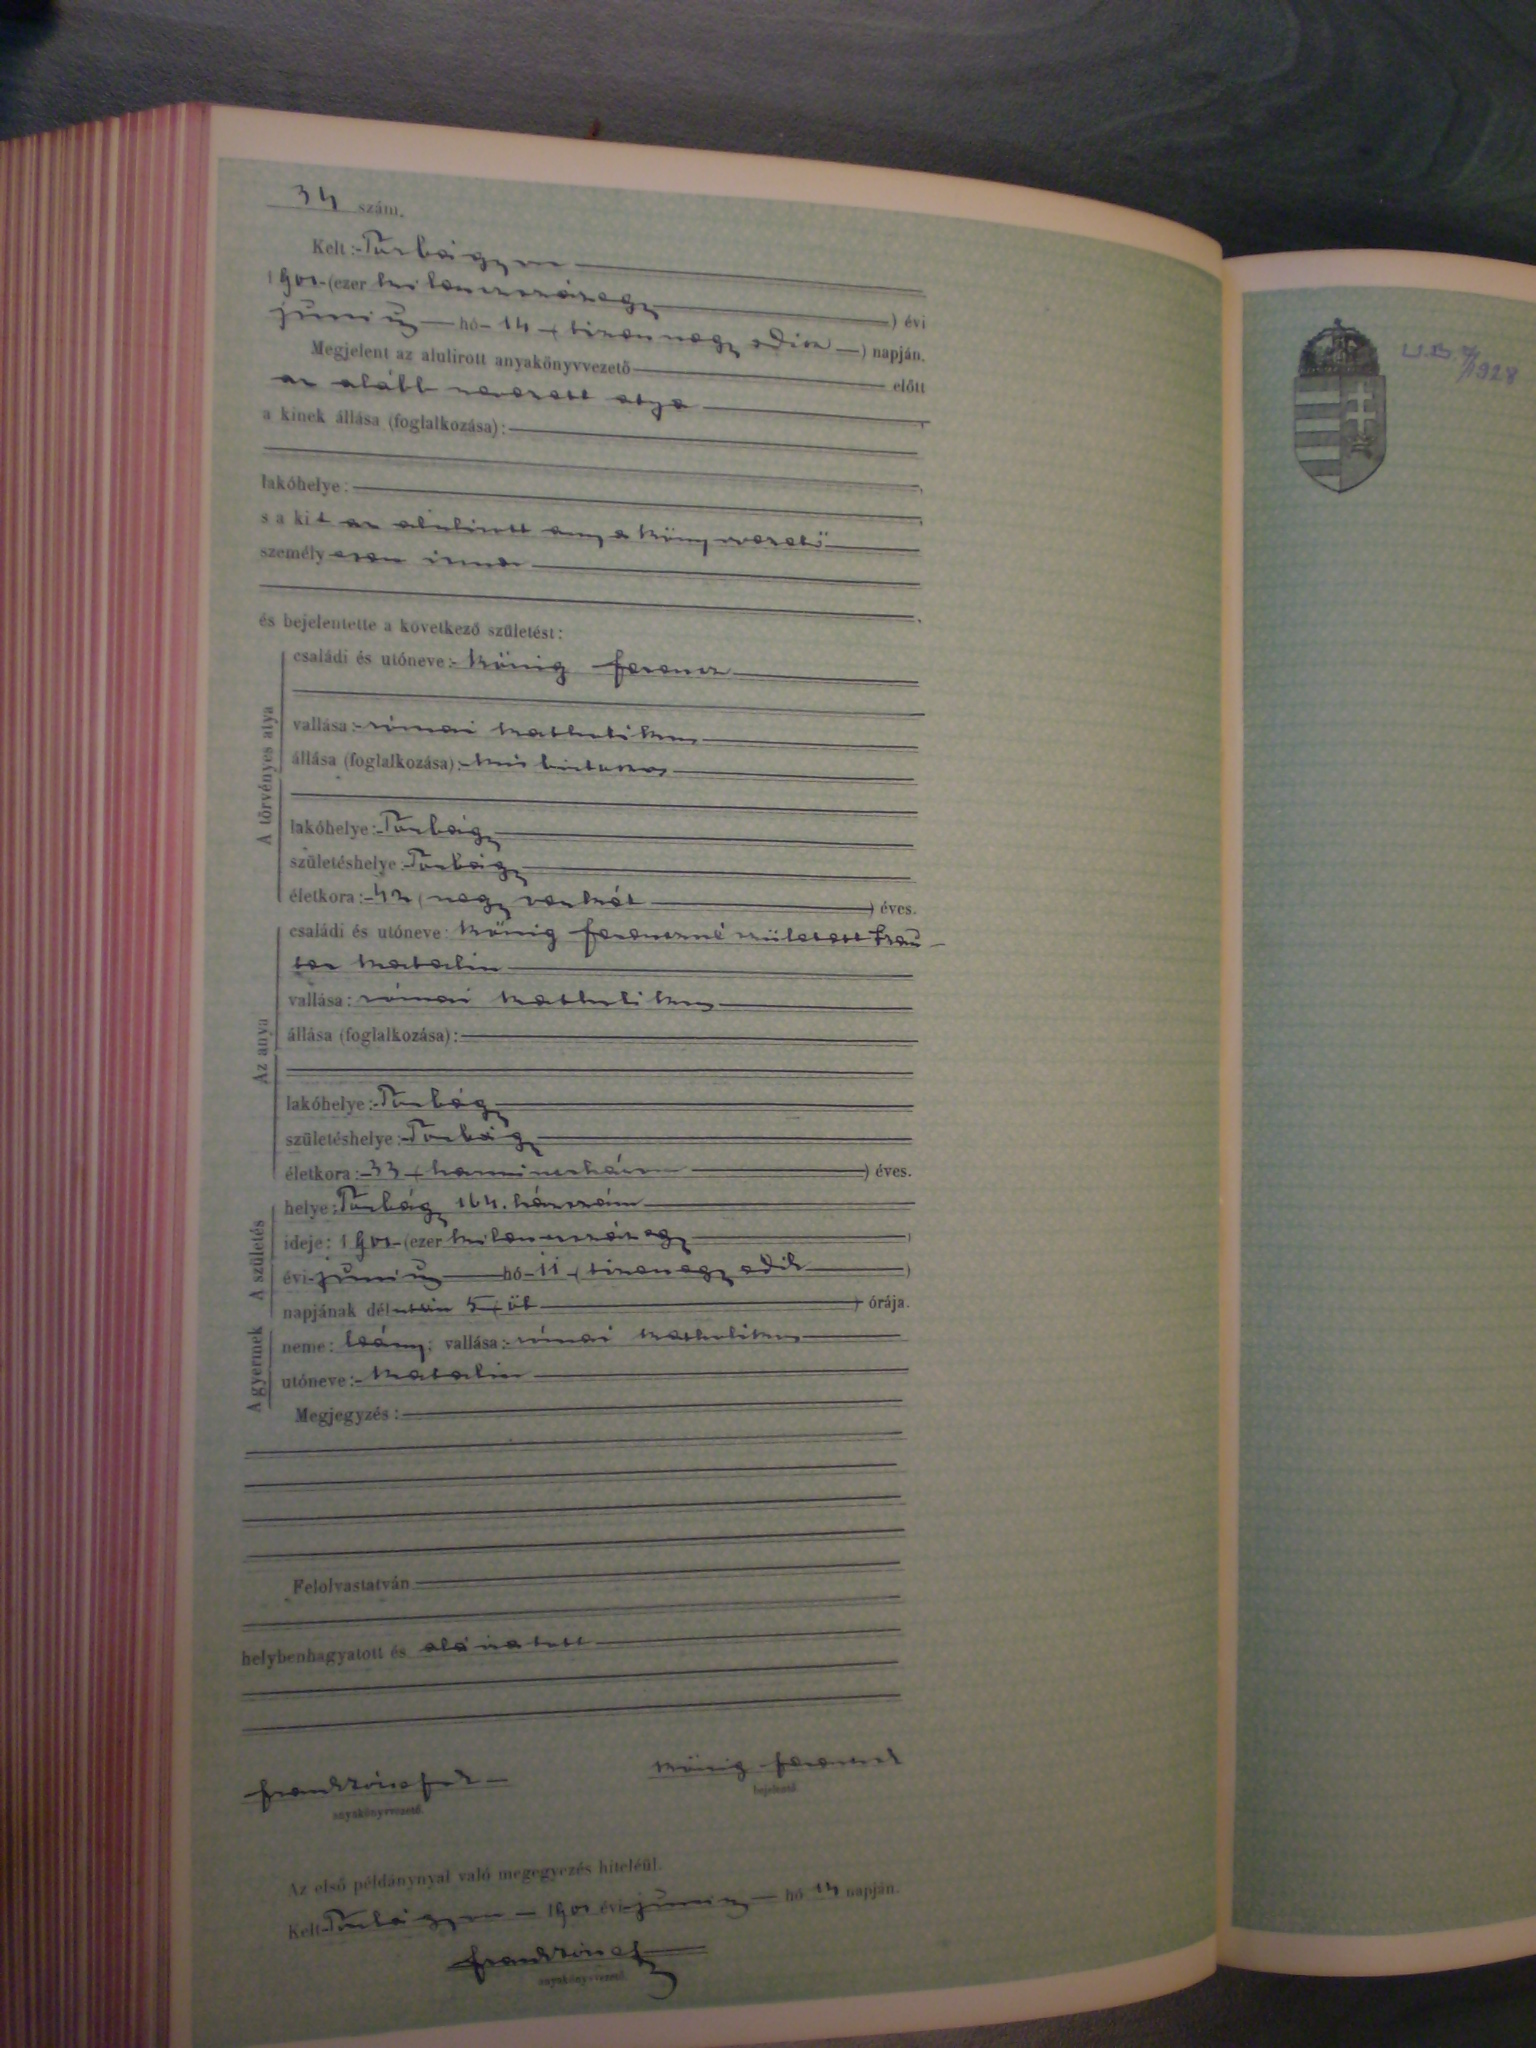 34 szám.
Kelt: Torbágyon
1901 (ezer kilenczszázegy) évi
június hó 14 (tizennegyedike) napján.
Megjelent az alulirott anyakönyvvezető előtt
az alább nevezett atya
a kinek állása (foglalkozása):
lakóhelye:
s a kit az alulirott anyakönyvvezető
személyesen ismer
és bejelentette a következő születést:
A törvényes atya
családi és utóneve: König Ferencz
vallása: római katholikus
állása (foglalkozása): kisbirtokos
lakóhelye: Torbágy
születéshelye: Torbágy
életkora: 42 (negyvenkét) éves.
Az anya
családi és utóneve: König Ferenczné született
Katalin
vallása: római katholikus
állása (foglalkozása):
lakóhelye: Torbágy
születéshelye: Torbágy
életkora: 33 (harminczhárom) éves.
A születés
helye: Torbágy 164. házszám
ideje: 1901 (ezer kilenczszázegy
évi június hó 11 (tizenegyedik)
napjának délután 5 (öt) órája.
A gyermek
neme: leány; vallása: római katholikus
utóneve: Katalin
Megjegyzés:
Felolvastatván
helybenhagyatott és aláiratott
König Ferencz
anyakönyvvezető. bejelentő.
Az első példánynyal való megegyezés hiteléül.
Kelt Torbágyon 1901 évi június hó 14 napján.
anyakönyvvezető.